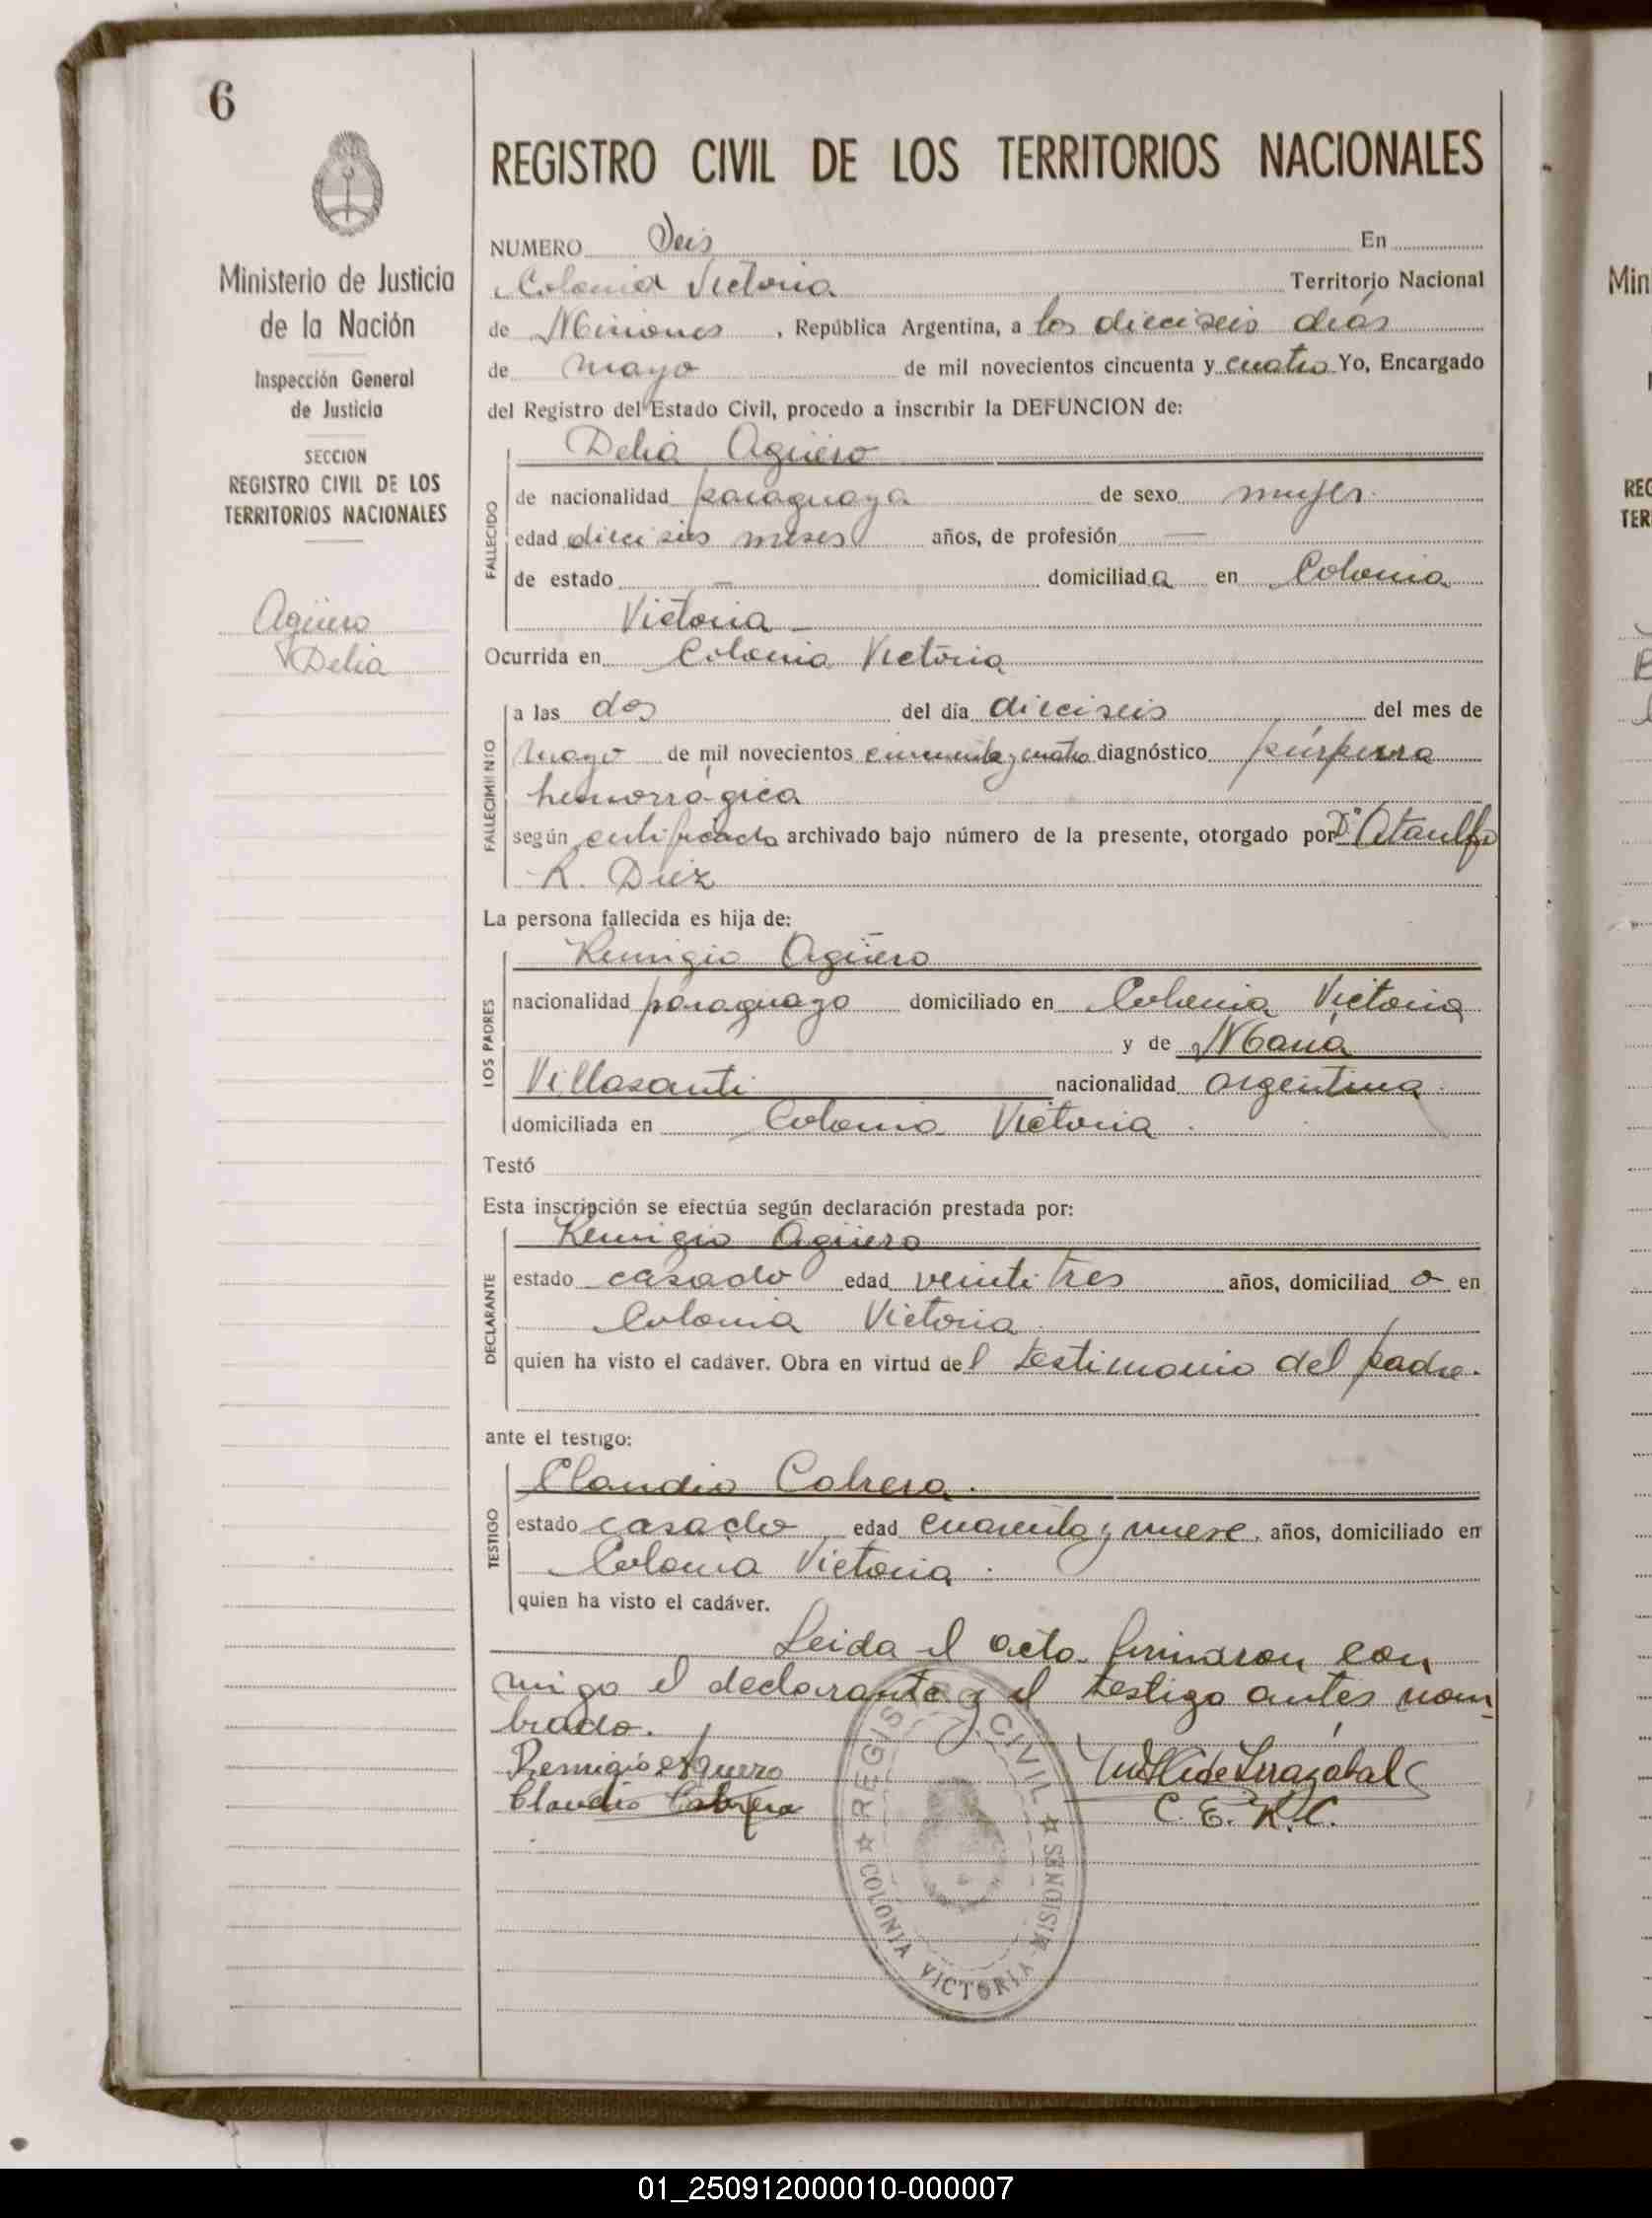 6
Ministerio de Justicia
de la Nación
Inspección General
de Justicia
SECCION
REGISTRO CIVIL DE LOS
TERRITORIOS NACIONALES
Agüero
Delia
REGISTRO CIVIL DE LOS TERRITORIOS NACIONALES
NUMERO Seis En
Colonia Victoria Territorio Nacional
de Misiones, República Argentina, a los dieciseis días
de mayo de mil novecientos cincuenta y cuatro Yo, Encargado
del Registro del Estado Civil, procedo a inscribir la DEFUNCION de:
FALLECIDO
Delia Agüero
de nacionalidad paraguaya de sexo mujer.
edad dieciseis meses años, de profesión —
de estado — domiciliada en Colonia
Victoria —
Ocurrida en Colonia Victoria
FALLECIMIENTO
a las dos del día dieciseis del mes de
mayo de mil novecientos cincuenta y cuatro diagnóstico púrpurra
hemorrágica
según certificado archivado bajo número de la presente, otorgado por Dr Ataulfo
R. Diez
La persona fallecida es hija de:
LOS PADRES
Remigio Agüero
nacionalidad paraguayo domiciliado en Colonia Victoria
y de María
Villasanti nacionalidad argentina.
domiciliada en Colonia Victoria.
Testó
Esta inscripción se efectúa según declaración prestada por:
DECLARANTE
Remigio Agüero
estado casado edad veintitres años, domiciliado en
Colonia Victoria.
quien ha visto el cadáver. Obra en virtud del testimonio del padre.
ante el testigo:
TESTIGO
Claudio Cabrera.
estado casado edad cuarenta y nueve. años, domiciliado en
Colonia Victoria.
quien ha visto el cadáver.
Leida el acta firmaron con
migo el declarante y el testigo antes nom
brado.
Remigio Aguero
Claudio Cabrera
C. E. R. C.
REGISTRO CIVIL
COLONIA VICTORIA
MISIONES
Min
REG
TER
01_250912000010-000007